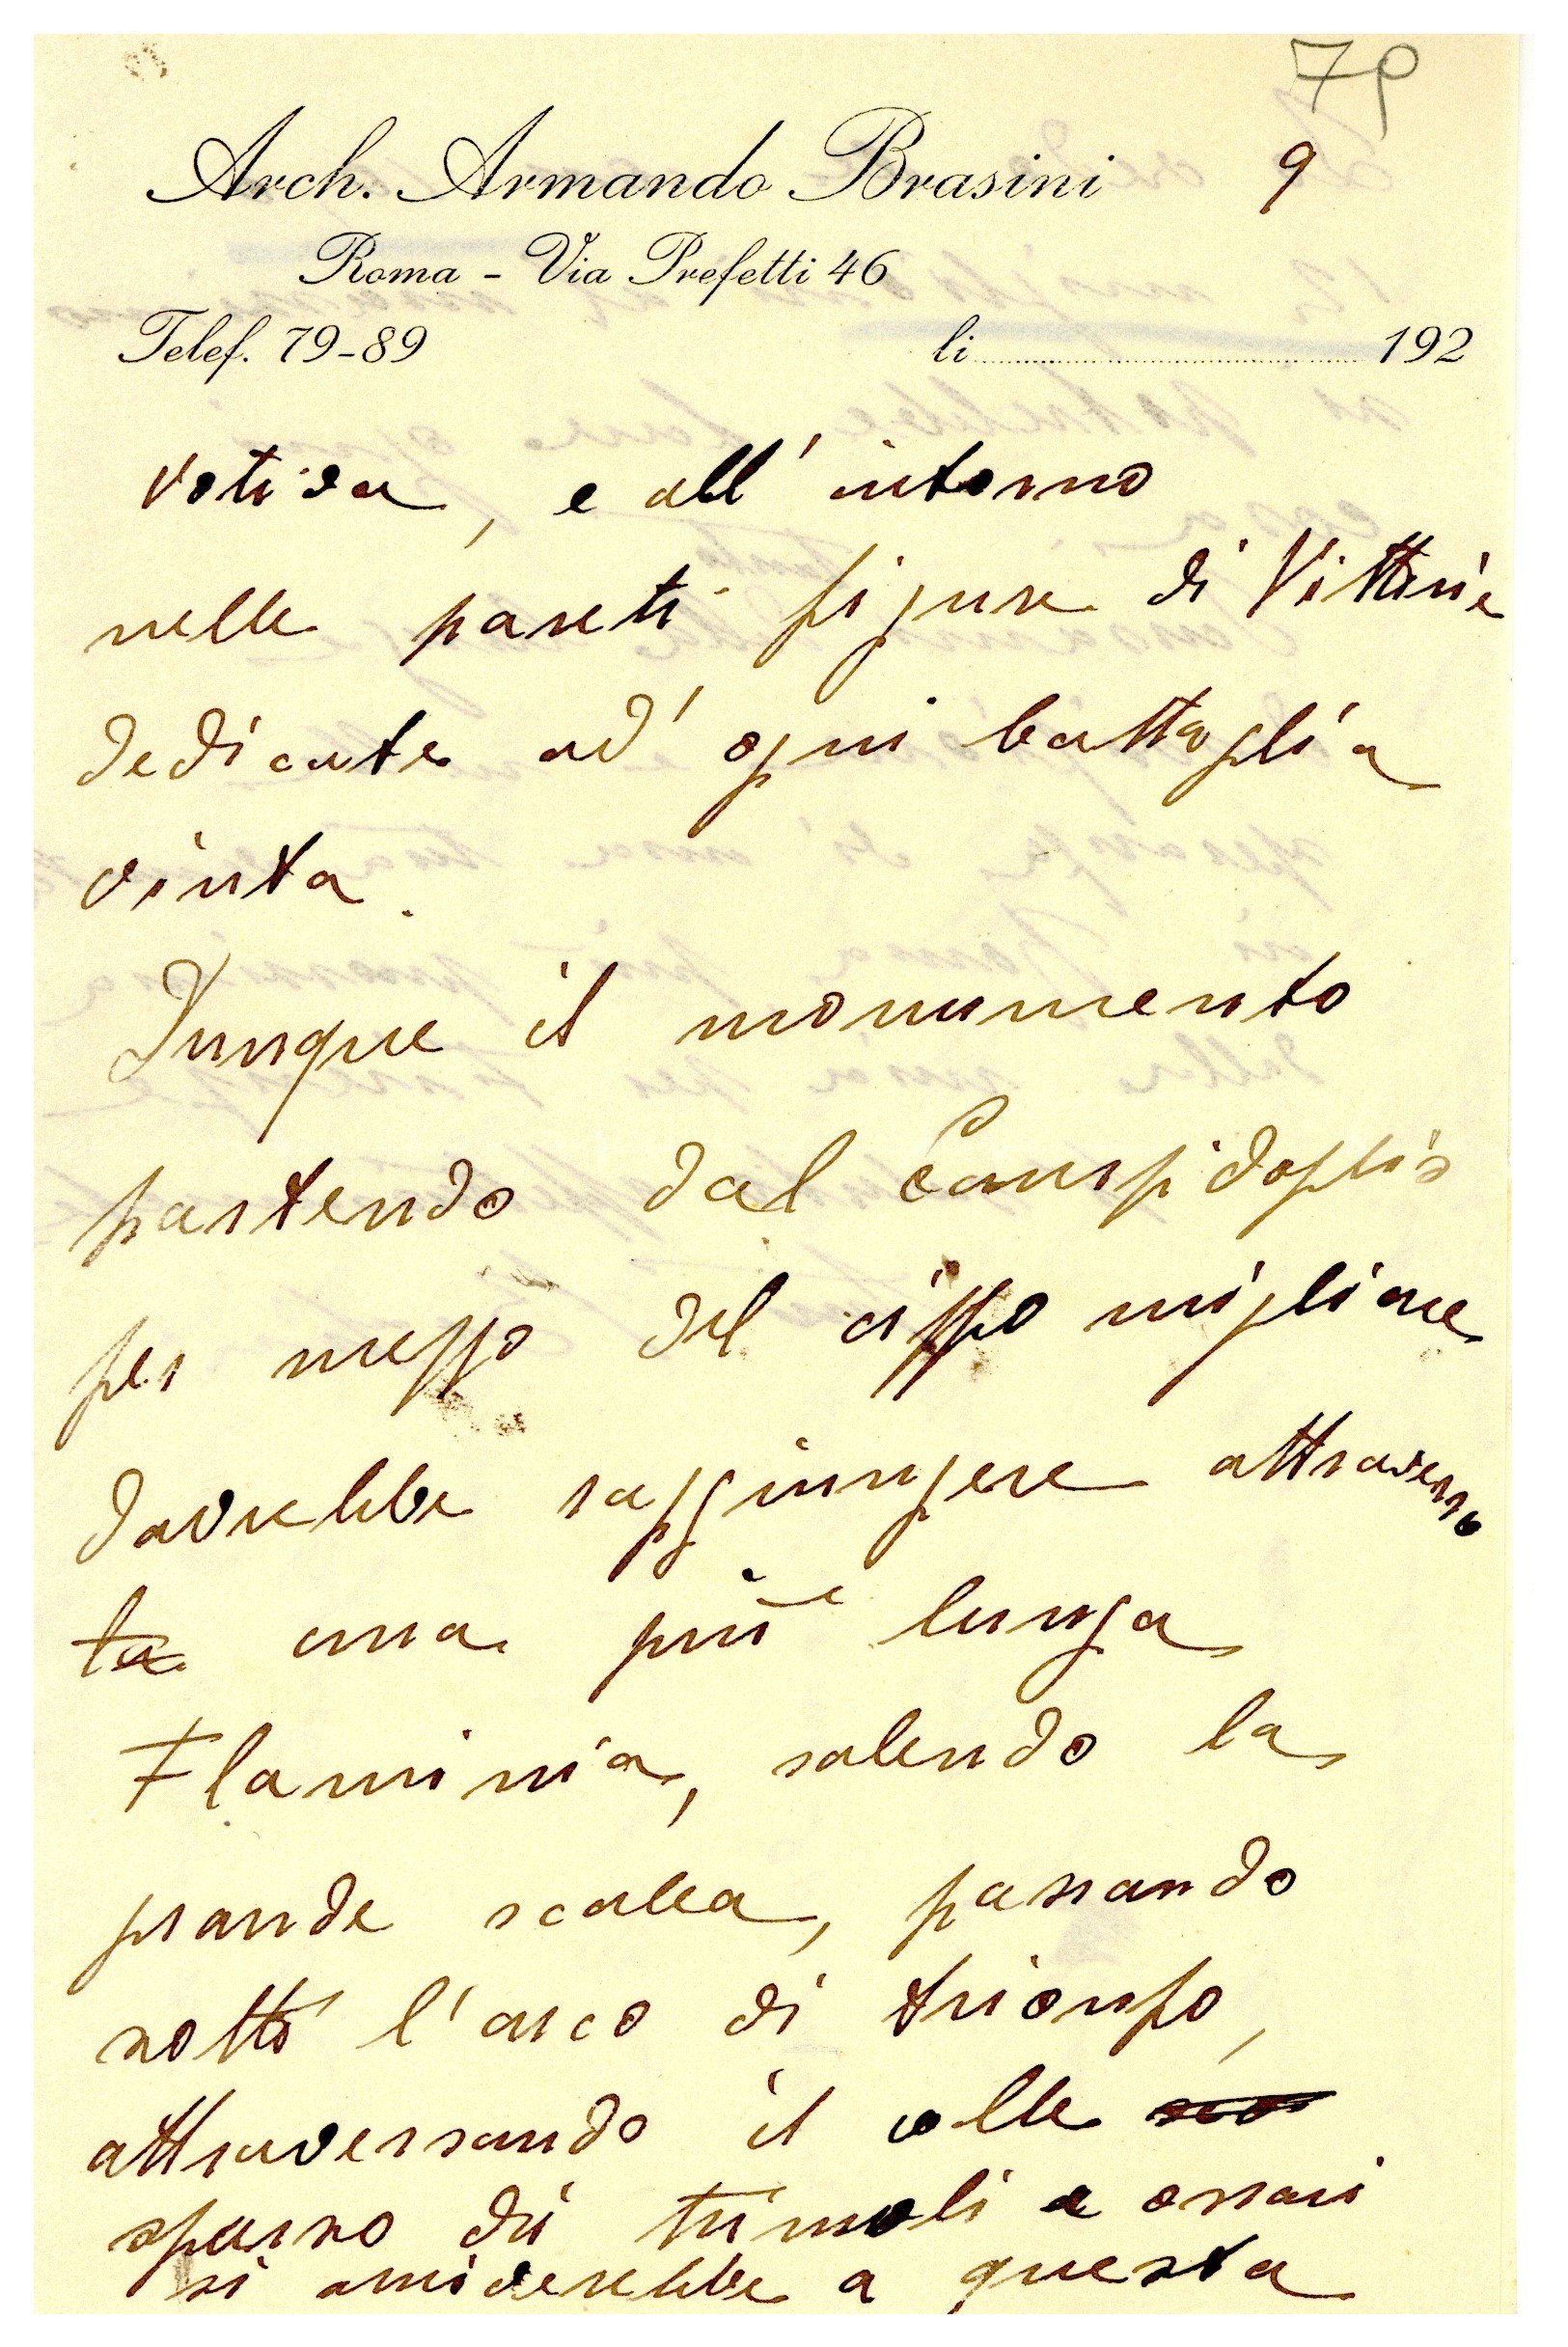 7P
Arch. Armando Brasini 9
Roma - Via Prefetti 46
Telef. 79-89 li 192
votiva, e all' intorno
nelle pareti figure di Vittorie
dedicate ad' ogni battaglia
vinta.
Dunque il monumento
partendo dal Campidoglio
per mezzo del cippo migliare
dovrebbe raggiungere attraverso
ta una più lunga
Flaminia, salendo la
grande scalea, passando
sotto l'arco di trionfo,
attraversando il colle
sparso di tumoli e ossari
si arriverebbe a questa